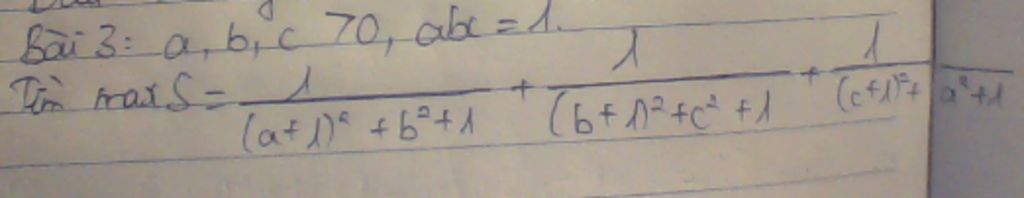 Bài 3: a, b, c > 0, abc = 1.
Tìm max S = 1/((a+1)² + b² + 1) + 1/((b+1)² + c² + 1) + 1/((c+1)² + a² + 1)